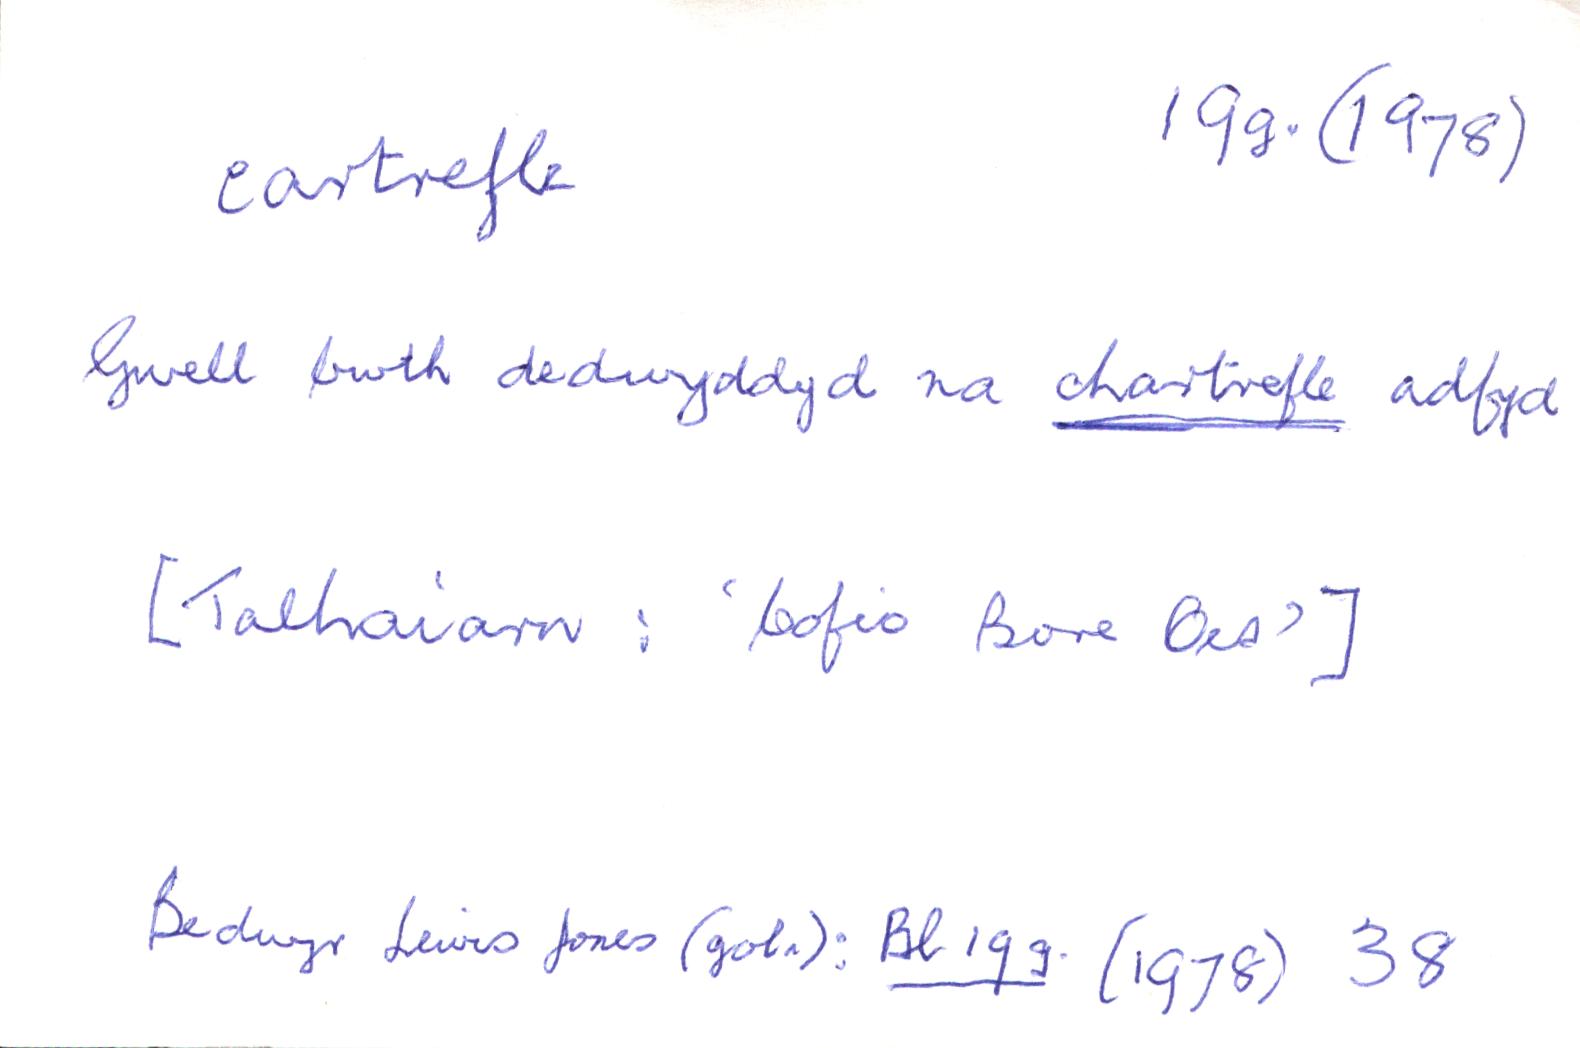 19g. (1978)
cartrefle
Gwell bwth dedwyddyd na chartrefle adfyd
[Talhaiarn : 'Cofio Bore Oes']
Bedwyr Lewis Jones (gol.): Bl 19g. (1978) 38